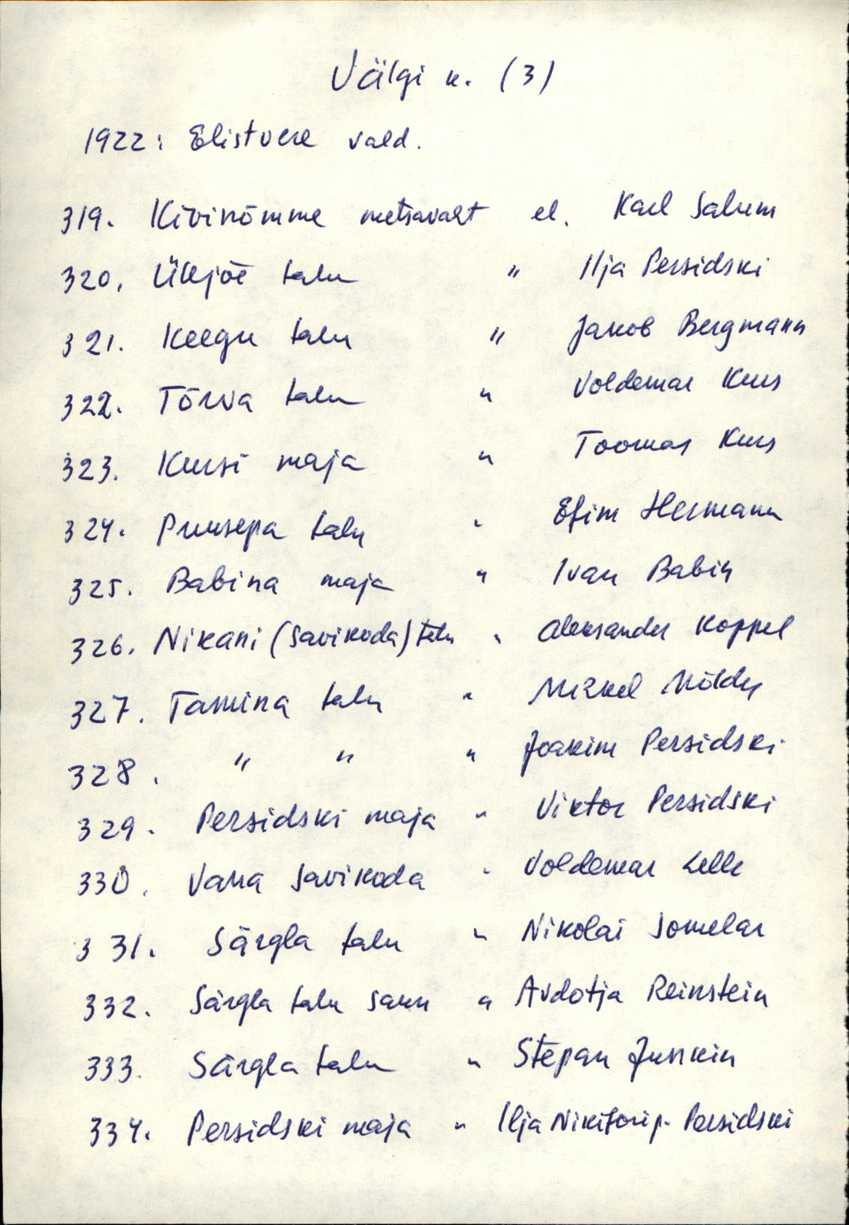 Välgi k. (3)
1922: Elistvere vald.
319. Kivinõmme metsavaht el. Karl Salum
320. Ülejõe talu " Ilja Persidski
321. Keegu talu " Jakob Bergmann
322. Tõrva talu " Voldemar Kurs
323. Kursi maja " Toomas Kurs
324. Pruusepa talu " Efim Hermann
325. Babina maja " Ivan Babin
326. Nikani (Savikoda) talu " Aleksander Koppel
327. Tamina talu " Mihkel Mölder
328. " " " Joakim Persidski
329. Persidski maja " Viktor Persidski
330. Vana Savikoda " Voldemar Lelle
331. Särgla talu " Nikolai Somelar
332. Särgla talu saun " Avdotja Reinstein
333. Särgla talu " Stepan Juskin
334. Persidski maja " Ilja Nikiforip. Persidski